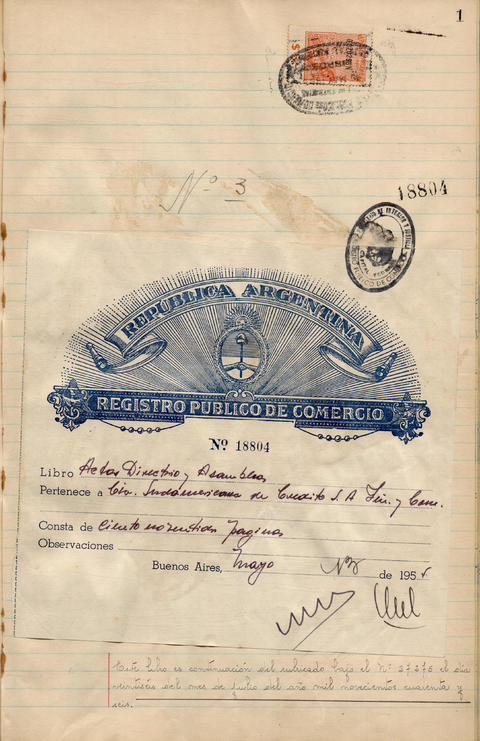 1
Nº 3
18804
REPUBLICA ARGENTINA
REGISTRO PUBLICO DE COMERCIO
Nº 18804
Libro Actas Directorio y Asambleas
Pertenece a Cia. Sudamericana de Credito S.A. Fin. y Com.
Consta de Ciento noventidos paginas
Observaciones
Buenos Aires, Mayo de 195
Este libro es continuación del rubricado bajo el Nº 27.275 el dia
veintiséis del mes de Julio del año mil novecientos cuarenta y
seis.